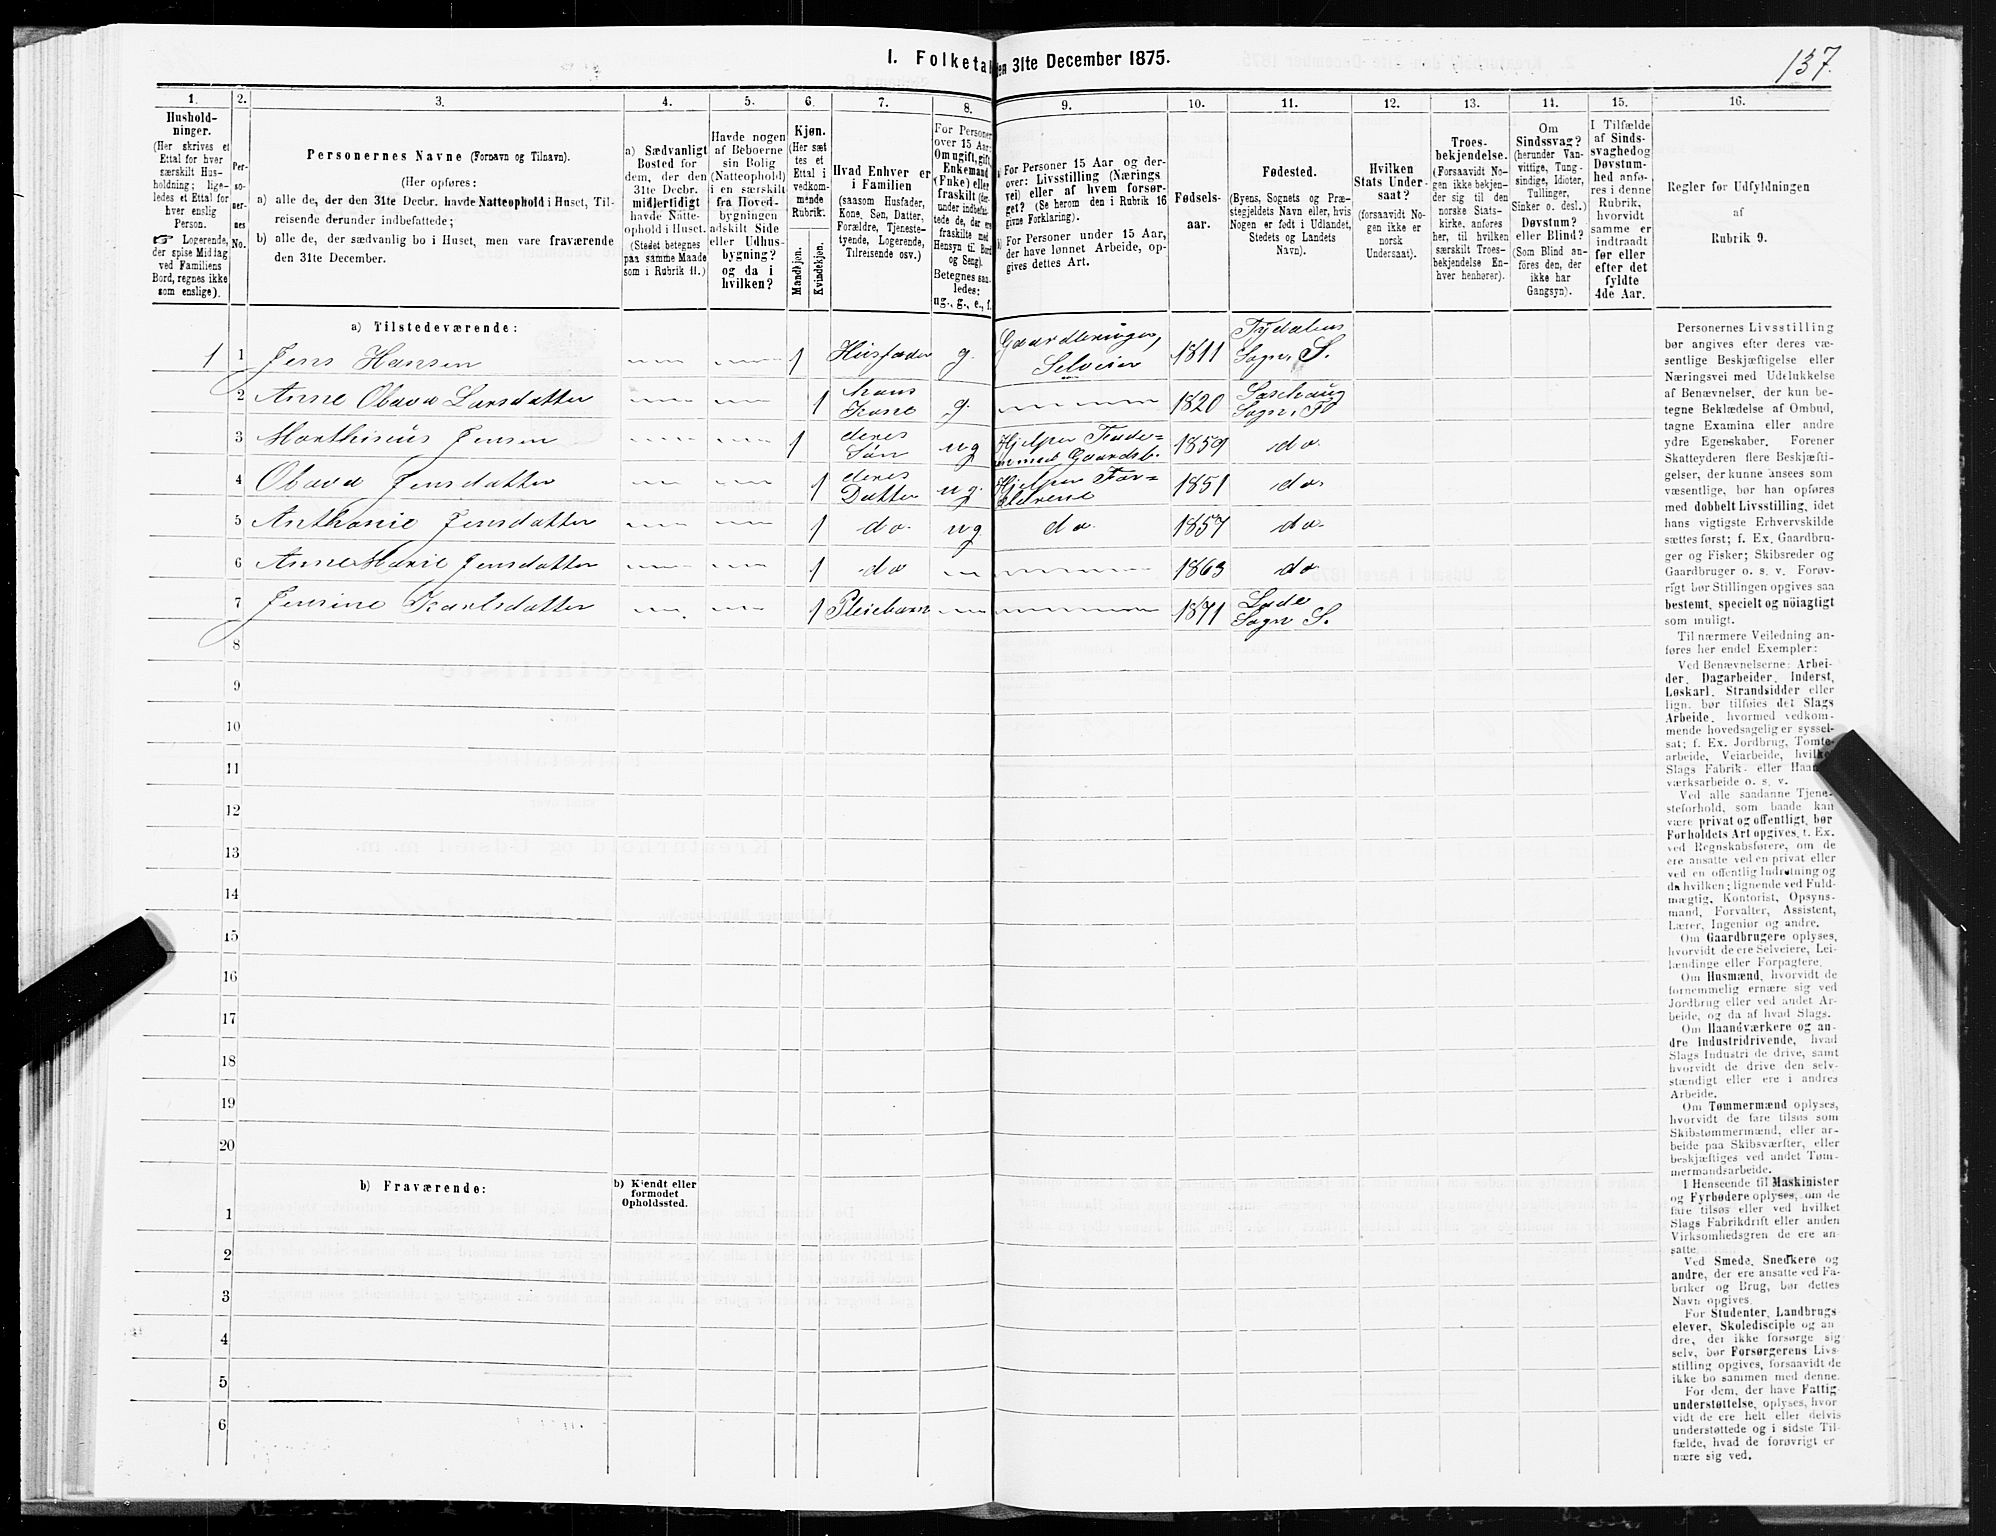 I. Folketal den 31te December 1875.
137.
1.
2.
3.
4.
5.
6.
7.
8.
9.
10.
11.
12.
13.
14.
15.
16.
Hushold-
ninger.
(Her skrives et
Ettal for hver
særskilt Hus-
holdning; lige-
ledes et Ettal for
hver enslig
Person.
☞ Logerende,
der spise Middag
ved Familiens
Bord, regnes ikke
som enslige).
Per-
so-
ner-
nes
No.
Personernes Navne (Fornavn og Tilnavn).
(Her opføres:
a) alle de, der den 31te Decbr. havde Natteophold i Huset, Til-
reisende derunder indbefattede;
b) alle de, der sædvanlig bo i Huset, men vare fraværende
den 31te December.
a) Sædvanligt
Bosted for
dem, der den
31te Decbr.
midlertidigt
havde Natte-
ophold i Huset.
(Stedet betegnes
paa samme Maade
som i Rubrik 11.)
Havde nogen
af Beboerne
sin Bolig
(Natteophold)
i en særskilt
fra Hoved-
bygningen
adskilt Side
eller Udhus-
bygning?
og da i
hvilken?
Kjøn.
(Her sæt
tes et
Ettal i
vedkom-
mende
Rubrik.
Mandkjøn.
Kvindekjøn.
Hvad Enhver er
i Familien
(saasom Husfader,
Kone, Søn, Datter,
Forældre, Tjeneste-
tyende, Logerende,
Tilreisende osv.)
For Personer
over 15 Aar:
Om ugift, gift,
Enkemand
(Enke) eller
fraskilt (der-
under indbefat-
tede de, der ere
fraskilte med
Hensyn til Bord
og Seng).
Betegnes saa-
ledes:
ug., g., e., f.
a) For Personer 15 Aar og der-
over: Livsstilling (Nærings
vei) eller af hvem forsør-
get? (Se herom den i Rubrik 16
givne Forklaring).
b) For Personer under 15 Aar,
der have lønnet Arbeide, op-
gives dettes Art.
Fødsels-
aar.
Fødested.
(Byens, Sognets og Præ-
stegjeldets Navn eller, hvis
Nogen er født i Udlandet,
Stedets og Landets
Navn).
Hvilken
Stats Under-
saat?
(forsaavidt No-
gen ikke er
norsk
Undersaat).
Troes-
bekjendelse.
(Forsaavidt No-
gen ikke bekjen-
der sig til den
norske Stats-
kirke, anføres
her, til hvilken
særskilt Troes-
bekjendelse En-
hver henhører).
Om
Sindssvag?
(herunder Van-
vittige, Tung-
sindige, Idioter,
Tullinger,
Sinker o. desl.)
Døvstum?
eller Blind?
(Som Blind an-
føres den, der
ikke har
Gangsyn).
I Tilfælde
af Sinds-
svaghed og
Døvstum-
hed anfø-
res i denne
Rubrik,
hvorvidt
samme er
indtraadt
før eller
efter det
fyldte
4de Aar.
Regler for Udfyldningen
af
Rubrik 9.
a) Tilstedeværende:
1 1 Jens Hansen 1 Husfader g. Gaardbruger, Selveier 1811 Tydalens Sogn, S.
2 Anne Obava Larsdatter 1 hans Kone g. 1820 Sogn, Fl
3 Marthinus Jensen 1 deres Søn ug Hjelper Fade- med Gaardsb. 1859 do
4 Obava Jensdatter 1 deres Datter ug. Hjelper For- ældrene 1851 do.
5 Anthonie Jensdatter 1 do. ug do. 1857 do.
6 Anne Marie Jensdatter 1 do 1863 do
7 Jensine Karlsdatter 1 Pleiebarn 1871 Lade Sogn S.
8
9
10
11
12
13
14
15
16
17
18
19
20
b) Fraværende:
b) Kjendt eller
formodet
Opholdssted.
1
2
3
4
5
6
Personernes Livsstilling
bør angives efter deres væ-
sentlige Beskjæftigelse eller
Næringsvei med Udelukkelse
af Benævnelser, der kun be-
tegne Beklædelse af Ombud,
tagne Examina eller andre
ydre Egenskaber. Forener
Skatteyderen flere Beskjæfti-
gelser, der kunne ansees som
væsentlige, bør han opføres
med dobbelt Livsstilling, idet
hans vigtigste Erhvervskilde
sættes først; f. Ex. Gaardbru-
ger og Fisker; Skibsreder og
Gaardbruger o. s. v. Forøv-
rigt bør Stillingen opgives saa
bestemt, specielt og nöiagtigt
som muligt.
Til nærmere Veiledning an-
føres her endel Exempler:
Ved Benævnelserne: Arbei-
der, Dagarbeider, Inderst,
Løskarl, Strandsidder eller
lign. bør tilføies det Slags
Arbeide, hvormed vedkom-
mende hovedsagelig er syssel-
sat; f. Ex. Jordbrug, Tomte-
arbeide, Veiarbeide, hvilket
Slags Fabrik- eller Haand-
værksarbeide o. s. v.
Ved alle saadanne Tjene-
steforhold, som baade kan
være privat og offentligt, bør
Forholdets Art opgives, t. Ex.
ved Regnskabsførere, om de
ere ansatte ved en privat eller
ved en offentlig Indretning og
da hvilken; lignende ved Fuld-
mægtig, Kontorist, Opsyns-
mand, Forvalter, Assistent,
Lærer, Ingeniør og andre.
Om Gaardbrugere oplyses,
hvorvidt de ere Selveiere, Lei-
lændinge eller Forpagtere.
Om Husmænd, hvorvidt de
fornemmelig ernære sig ved
Jordbrug eller ved andet Ar-
beide, og da af hvad Slags.
Om Haandværkere og an-
dre Industridrivende, hvad
Slags Industri de drive, samt
hvorvidt de drive den selv-
stændigt eller ere i andres
Arbeide.
Om Tømmermænd oplyses,
hvorvidt de fare tilsøs som
Skibstømmermænd, eller ar-
beide paa Skibsværfter, eller
beskjæftiges ved andet Tøm-
mermandsarbeide.
I Henseende til Maskinister
og Fyrbødere oplyses, om de
fare tilsøs eller ved hvilket
Slags Fabrikdrift eller anden
Virksomhedsgren de ere an-
satte.
Ved Smede, Snedkere og
andre, der ere ansatte ved Fa-
briker og Brug, bør dettes
Navn opgives.
For Studenter, Landbrugs
elever, Skoledisciple og an-
dre, der ikke forsørge sig
selv, bør Forsørgerens Livs-
stilling opgives, forsaavidt de
ikke bo sammen med denne.
For dem, der have Fattig-
understøttelse, oplyses, hvor
vidt de ere helt eller delvis
understøttede og i sidste Til-
fælde, hvad de forøvrigt er
nære sig ved.